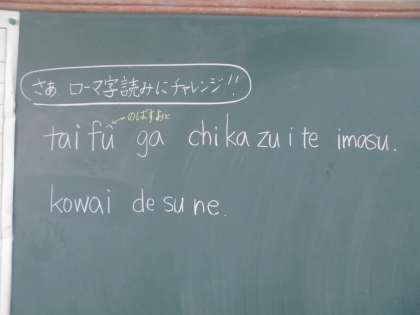 さぁ ローマ字読みにチャレンジ!!
のばすおと
taifû ga chikazuite imasu.
kowai desu ne.